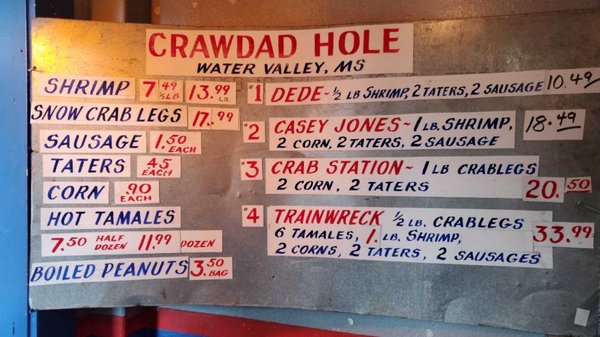 CRAWDAD HOLE
WATER VALLEY, MS
SHRIMP 7 49 ½LB 13.99 LB
SNOW CRAB LEGS 17.99
SAUSAGE 1.50 EACH
TATERS .45 EACH
CORN .90 EACH
HOT TAMALES
7.50 HALF DOZEN 11.99 DOZEN
BOILED PEANUTS 3.50 BAG
#1 DEDE~ ½ LB SHRIMP, 2 TATERS, 2 SAUSAGE 10.49
#2 CASEY JONES~ 1 LB. SHRIMP, 18.49
2 CORN, 2 TATERS, 2 SAUSAGE
#3 CRAB STATION~ 1 LB CRABLEGS
2 CORN, 2 TATERS 20.50
#4 TRAINWRECK ½ LB. CRABLEGS
6 TAMALES, 1 LB. SHRIMP, 33.99
2 CORNS, 2 TATERS, 2 SAUSAGES